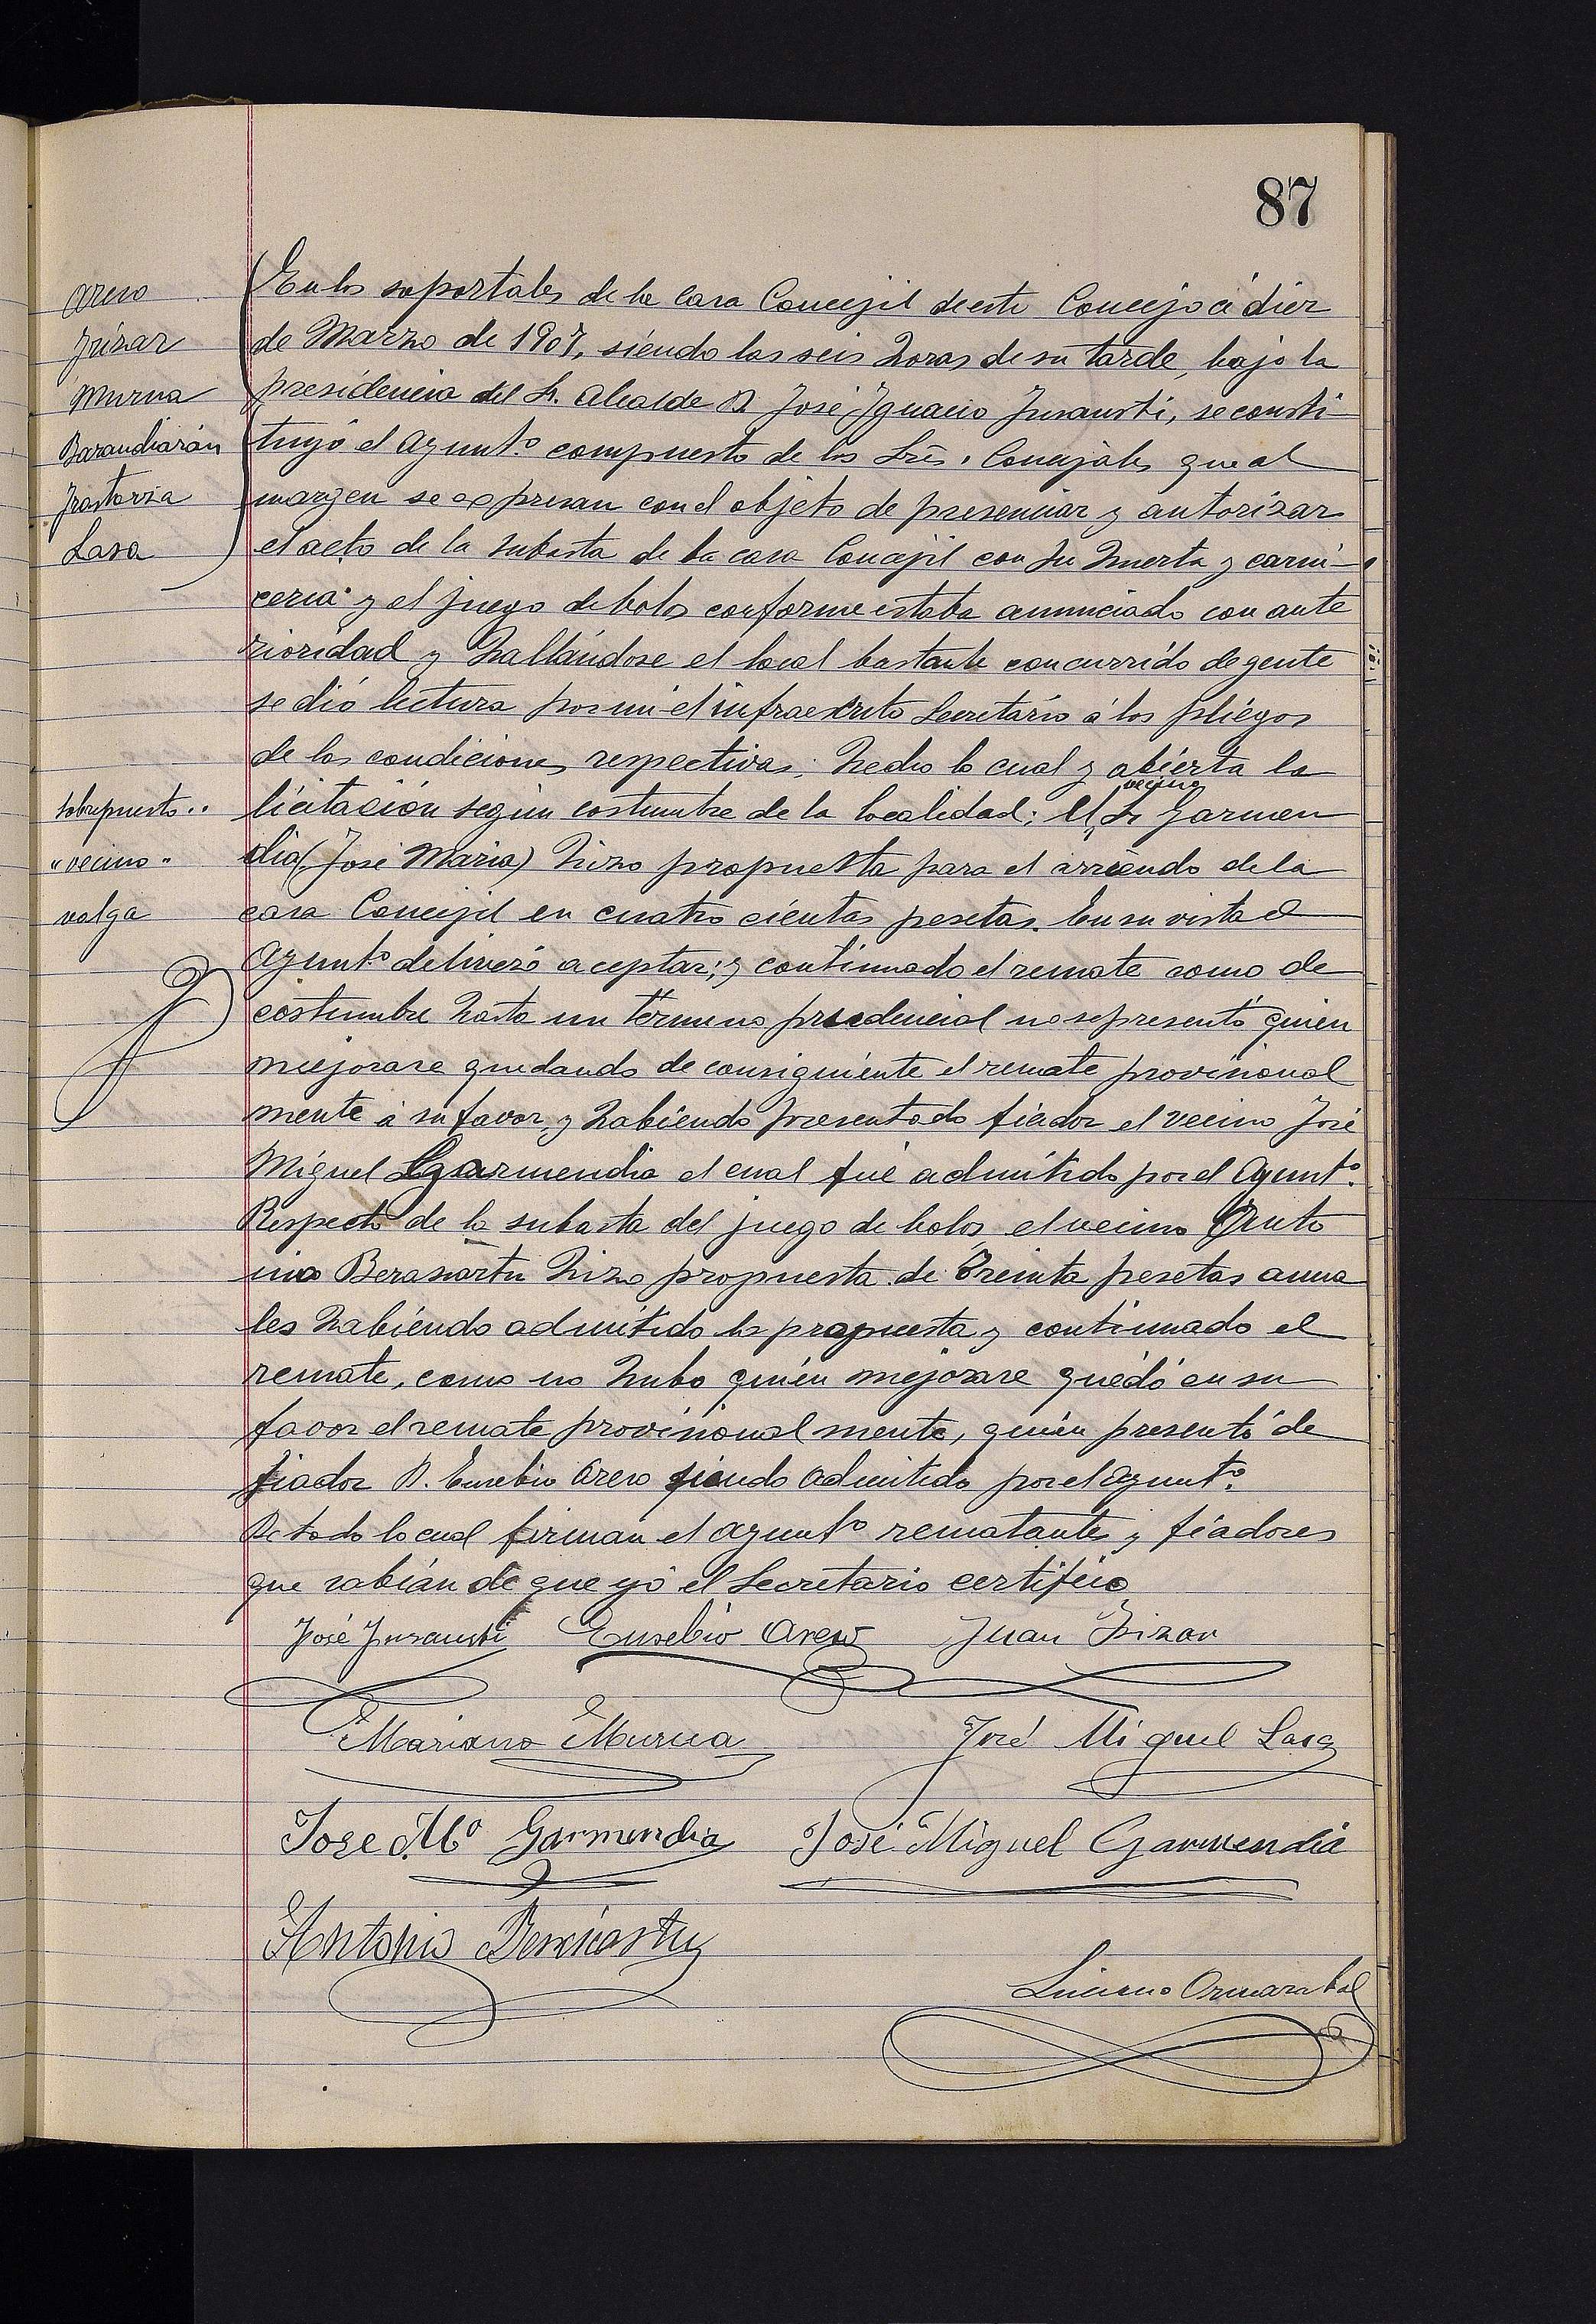 87
Areso
Irizar
Murua
Barandiarán
Irastorza
Lasa
En los soportales de la Casa Concejil de este Concejo á diez
de Marzo de 1907, siendo las seis horas de su tarde, bajo la
presidencia del Sr. Alcalde D. José Ignacio Insausti, se consti-
tuyó el Ayunt.º compuesto de los Srēs. Concejales que al
margen se expresan con el objeto de presenciar y autorizar
el acto de la subasta de la casa Concejil con su huerta y carni-
cería y el juego de bolos conforme estaba anunciado con ante
rioridad y hallándose el local bastante concurrido de gente
se dió lectura por mi el infraescrito Secretario á los pliegos
de las condiciones respectivas. Hecho lo cual y abierta la
vecino
licitación según costumbre de la localidad; El Sr Garmen
dia (José Maria) hizo propuesta para el arriendo de la
casa Concejil en cuatro cientas pesetas. En su vista el
Ayunt.º deliveró aceptar; y continuado el remate como de
costumbre hasta un término prudencial no se presentó quien
mejorase quedando de consiguiente el remate provisional
mente á su favor, y habiendo presentado fiador el vecino José
Miguel Garmendia el cual fué admitido por el Ayunt.º
Respecto de la subasta del juego de bolos el vecino
Berasartu hizo propuesta de treinta pesetas anua
les habiendo admitido la propuesta y continuado el
remate, como no hubo quien mejorare quedó en su
favor el remate provisional mente, quien presentó de
fiador D. Eusebio Areso siendo admitido por el Ayunt.º
De todo lo cual firman el Ayunt.º rematantes y fiadores
que sabían de que yó el Secretario certifico
Sobrepuesto..
"vecino"
valga
José Insausti Eusebio Areso Juan Irizar
Mariano Murua José Miguel Lasa
Jose Mª Garmendia José Miguel Garmendia
Antonio
Luciano Ormazabal